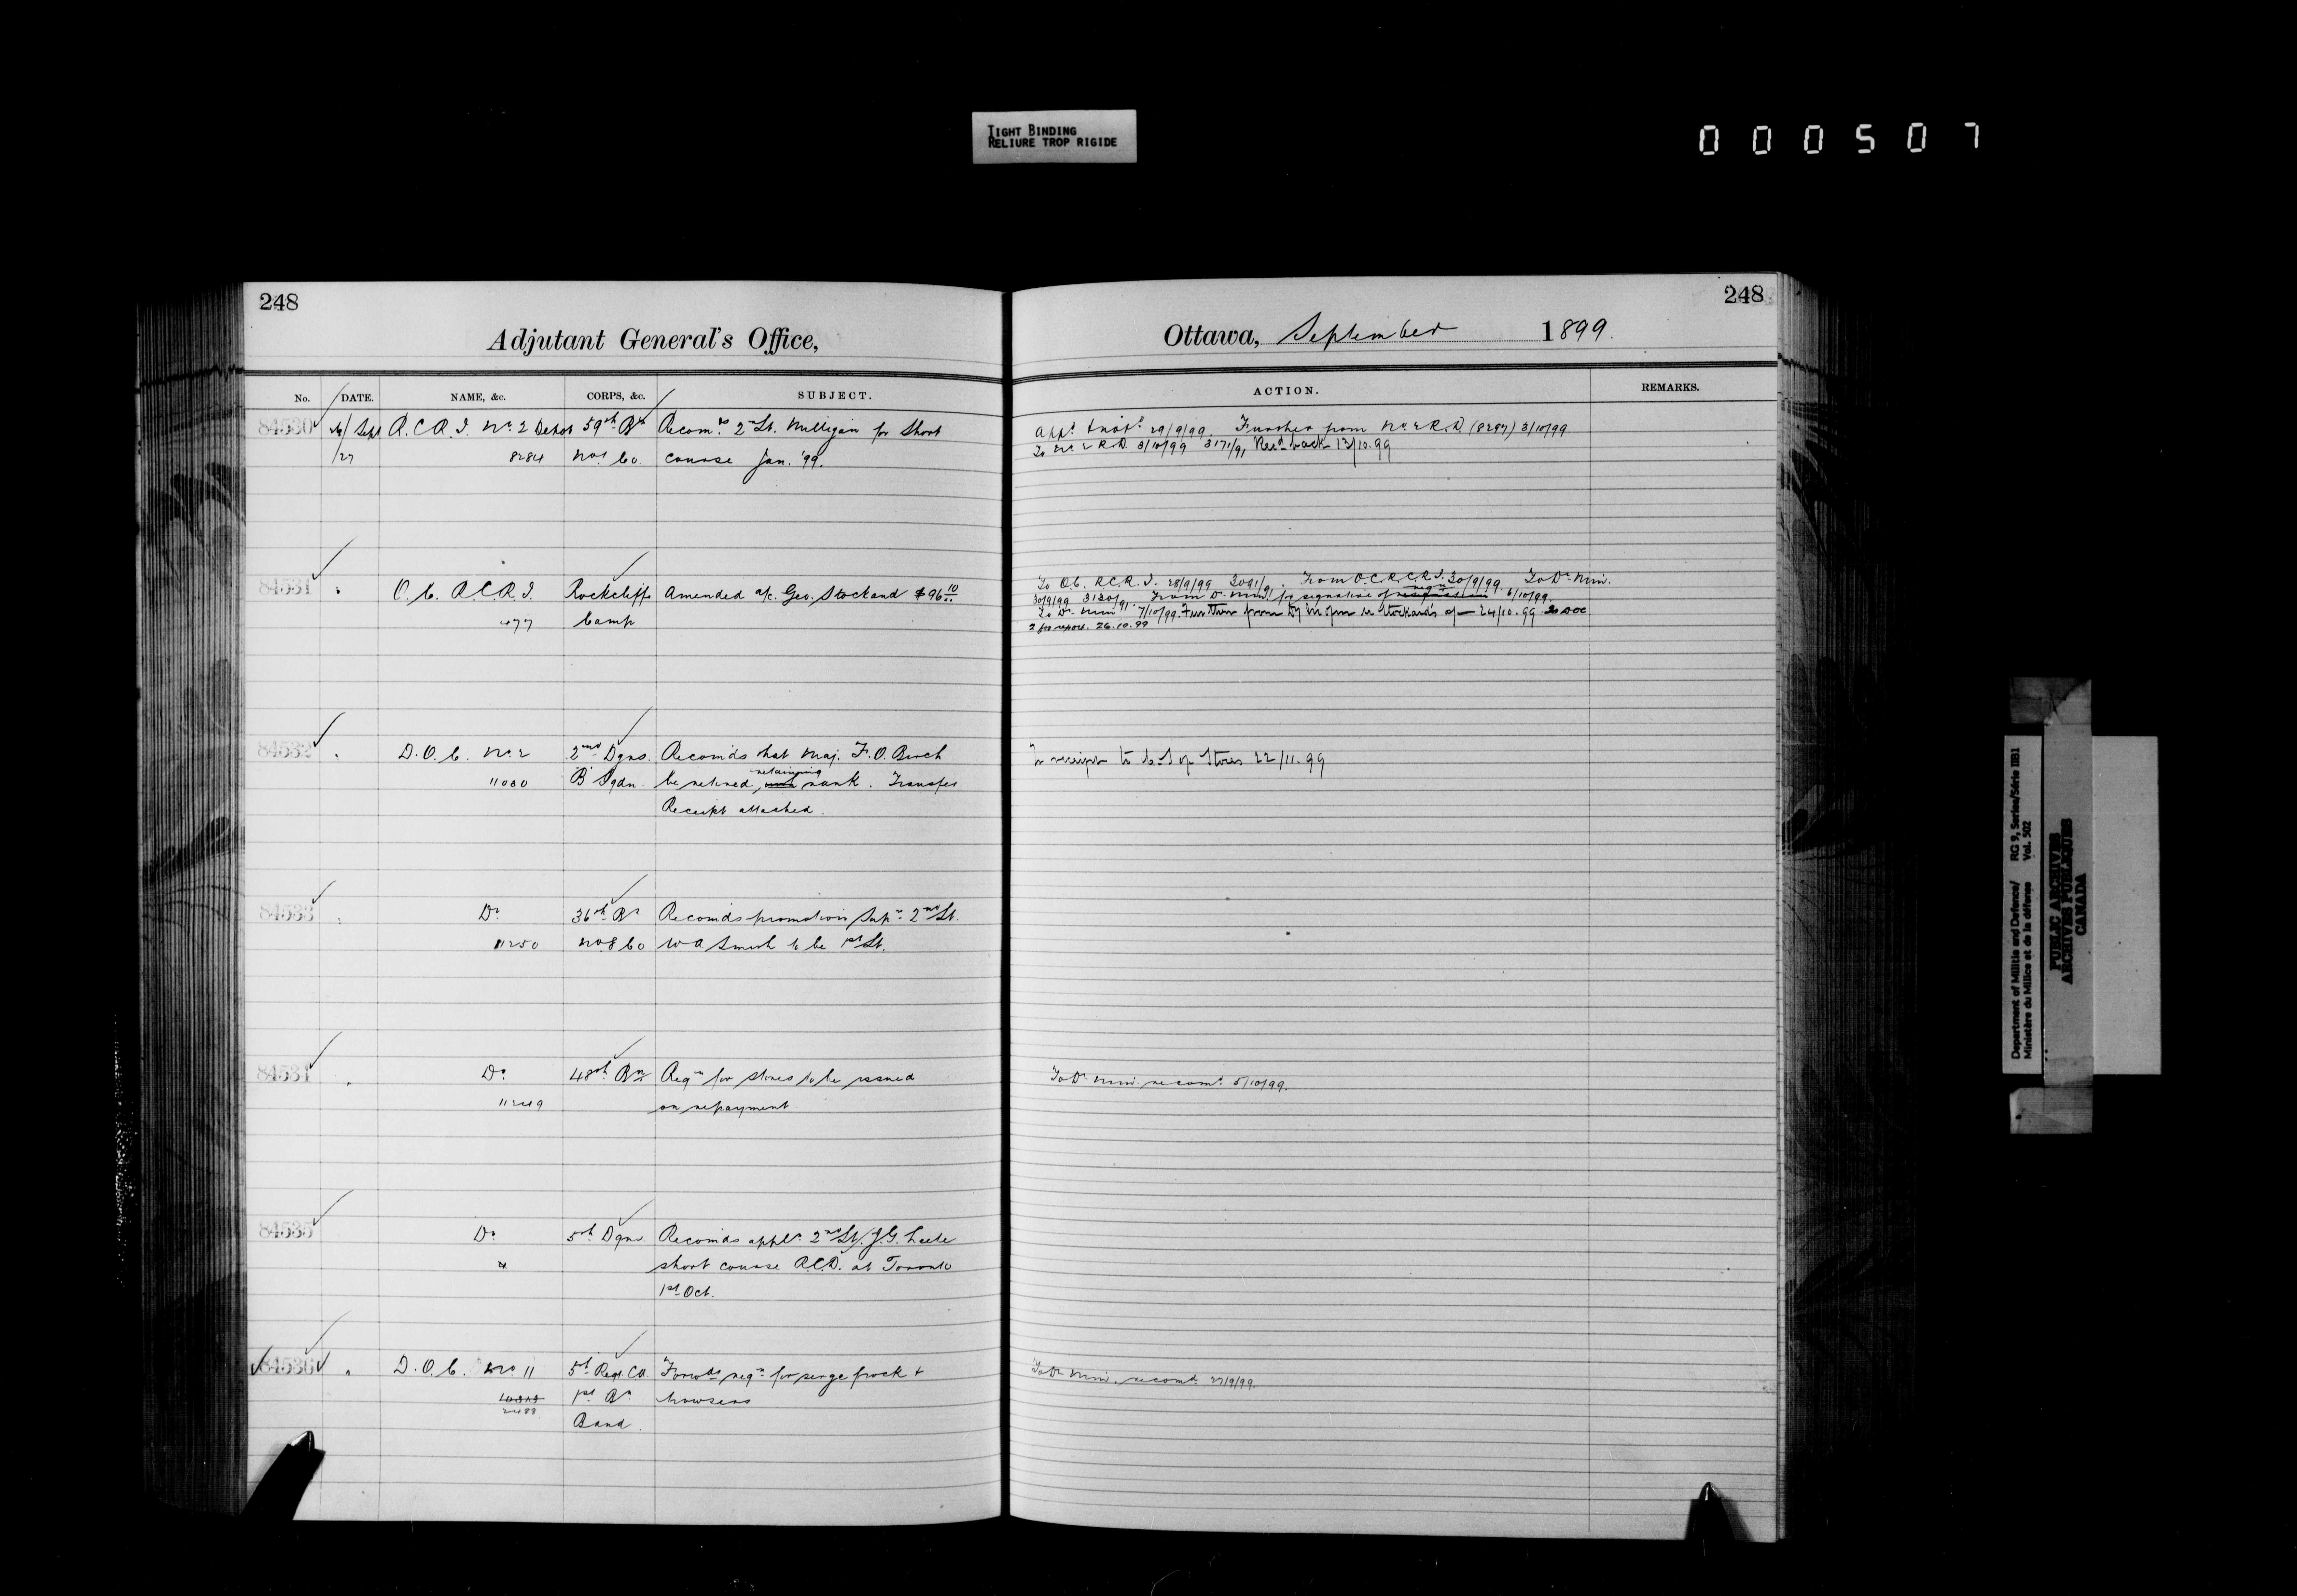 TIGHT BINDING
RELIURE TROP RIGIDE
000507
248
Adjutant General's Office,
No. DATE. NAME, &c. CORPS, &c. SUBJECT.
84530 Sept R.C.R.I. No. 2 Depot 59th Bn Recom. 2nd Lt. Milligan for Short
/27 8284 No 1 Co course Jan. '99.
84531 " O.C. R.C.R.I. Rockcliffe Amended a/c. Geo. Stockand $96 10
477 Camp
84532 " D.O.C. No. 2 2nd Dgns. Recomds that Maj. F.O. Burch
11080 B Sqdn. be retired, retaining rank. Transfer
Receipt attached.
84533 " Do 36th Bn Recomds promotion Sup. 2nd Lt.
11250 No 8 Co W A Smith to be 1st Lt.
84534 " Do 48th Bn Reqn for stores to be issued
11249 on repayment
84535 Do 5th Dgns Recomds appln. 2nd Lt. J.G.
short course R.C.D. at Toronto
1st Oct.
84536 " D.O.C. No 11 5th Regt CA Forwds reqn for serge frock &
2488 1st Bn trowsers
Band.
248
Ottawa, September 1899.
ACTION. REMARKS.
29/9/99 Further from No 2 R.D. (8297) 3/10/99
To No 2 R.D. 3/10/99 3171/9, Recd back 13/10.99
To O.C. R.C.R.I. 28/9/99 3091/9. From O.C.R.C.R.I. 30/9/99. To Dr. Min.
30/9/99 3130/9 From Dr. Min. for signature of reqn 6/10/99.
To Dr. Min 7/10/99. Further from Stockand's 24/10.99 to DOC
2 for report. 26.10.99
receipt to C.S. of Stores 22/11.99
To Dr. Min. recomd. 5/10/99.
To Dr. Min. recomd. 27/9/99.
Department of Militia and Defence/ RG 9, Series/Série IIB1
Ministère du Milice et de la défense Vol. 502
PUBLIC ARCHIVES
ARCHIVES PUBLIQUES
CANADA